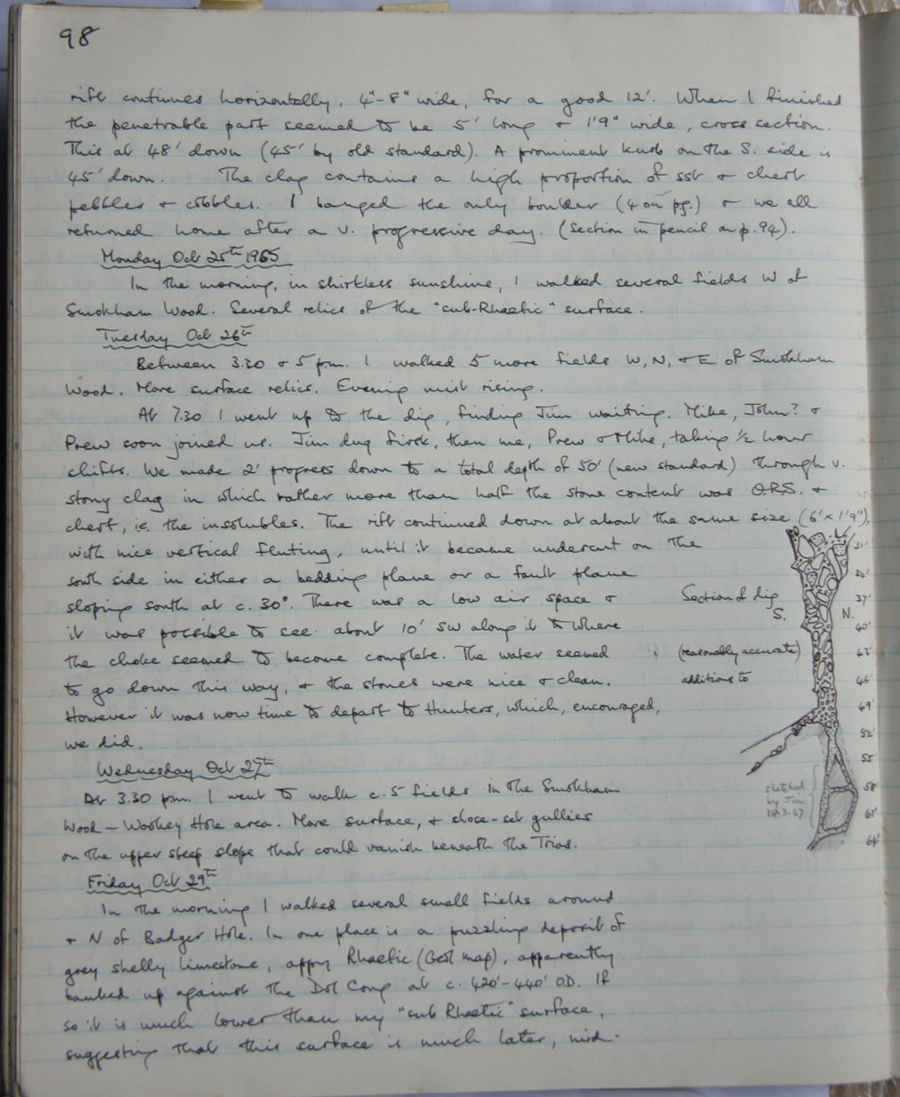 98
rift continues horizontally, 4"-8" wide, for a good 12'. When I finished
the penetrable part seemed to be 5' long + 1'9" wide, cross section.
This at 48' down (45' by old standard). A prominent knob on the S. side is
45' down. The clag contains a high proportion of sst + chert
pebbles + cobbles. I banged the only boulder (4 on pg.) + we all
returned home after a v. progressive day. (Section in pencil on p.94).
Monday Oct 25th 1965
In the morning, in shirtless sunshine, I walked several fields W of
Smokham Wood. Several relics of the "sub-Rhaetic" surface.
Tuesday Oct 26th
Between 3.30 + 5 pm. I walked 5 more fields W, N, + E of Smokham
Wood. More surface relics. Evening mist rising.
At 7.30 I went up to the dig, finding Jim waiting. Mike, John? +
Prew soon joined us. Jim dug first, then me, Prew + Mike, taking 1/2 hour
shifts. We made 2' progress down to a total depth of 50' (new standard) through v.
stony clag in which rather more than half the stone content was ORS. +
chert, ie. the insolubles. The rift continued down at about the same size (6' x 1'9"),
with nice vertical fluting, until it became undercut on the
south side in either a bedding plane or a fault plane
sloping south at c. 30°. There was a low air space +
it was possible to see about 10' SW along it to where
the choke seemed to become complete. The water seemed
to go down this way, + the stones were nice + clean.
However it was now time to depart to Hunters, which, encouraged,
we did.
Section of dig
S. N.
(reasonably accurate)
additions to
31'
34'
37'
40'
43'
46'
49'
52'
55'
58'
61'
64'
sketched
by Jim
Wednesday Oct 27th
At 3.30 pm. I went to walk c. 5 fields in the Smokham
Wood - Wookey Hole area. More surface, + close-set gullies
on the upper steep slope that could vanish beneath the Trias.
Friday Oct 29th
In the morning I walked several small fields around
+ N of Badger Hole. In one place is a puzzling deposit of
grey shelly limestone, appry Rhaetic (Geol map), apparently
banked up against the Dol Cong at c. 420'-440' OD. If
so it is much lower than my "sub Rhaetic" surface,
suggesting that this surface is much later, mid-